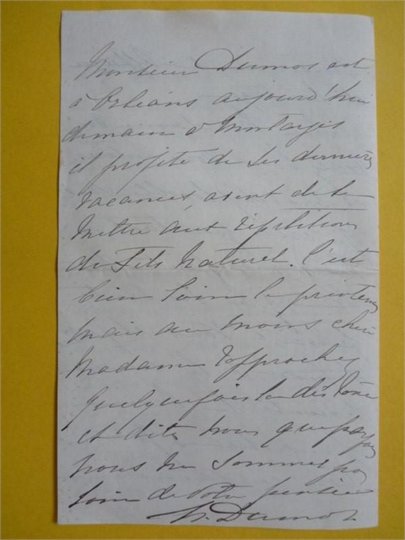 Monsieur Dumas est
à Orléans aujourd'hui
demain à Montargis
il profite de ses dernières
vacances, avant de se
mettre aux répétitions
du Fils Naturel. C'est
bien loin le printemps
mais au moins chère
Madame rapprochez
quelquefois la distance
et dites vous que
nous ne sommes pas
loin de votre
Dumas